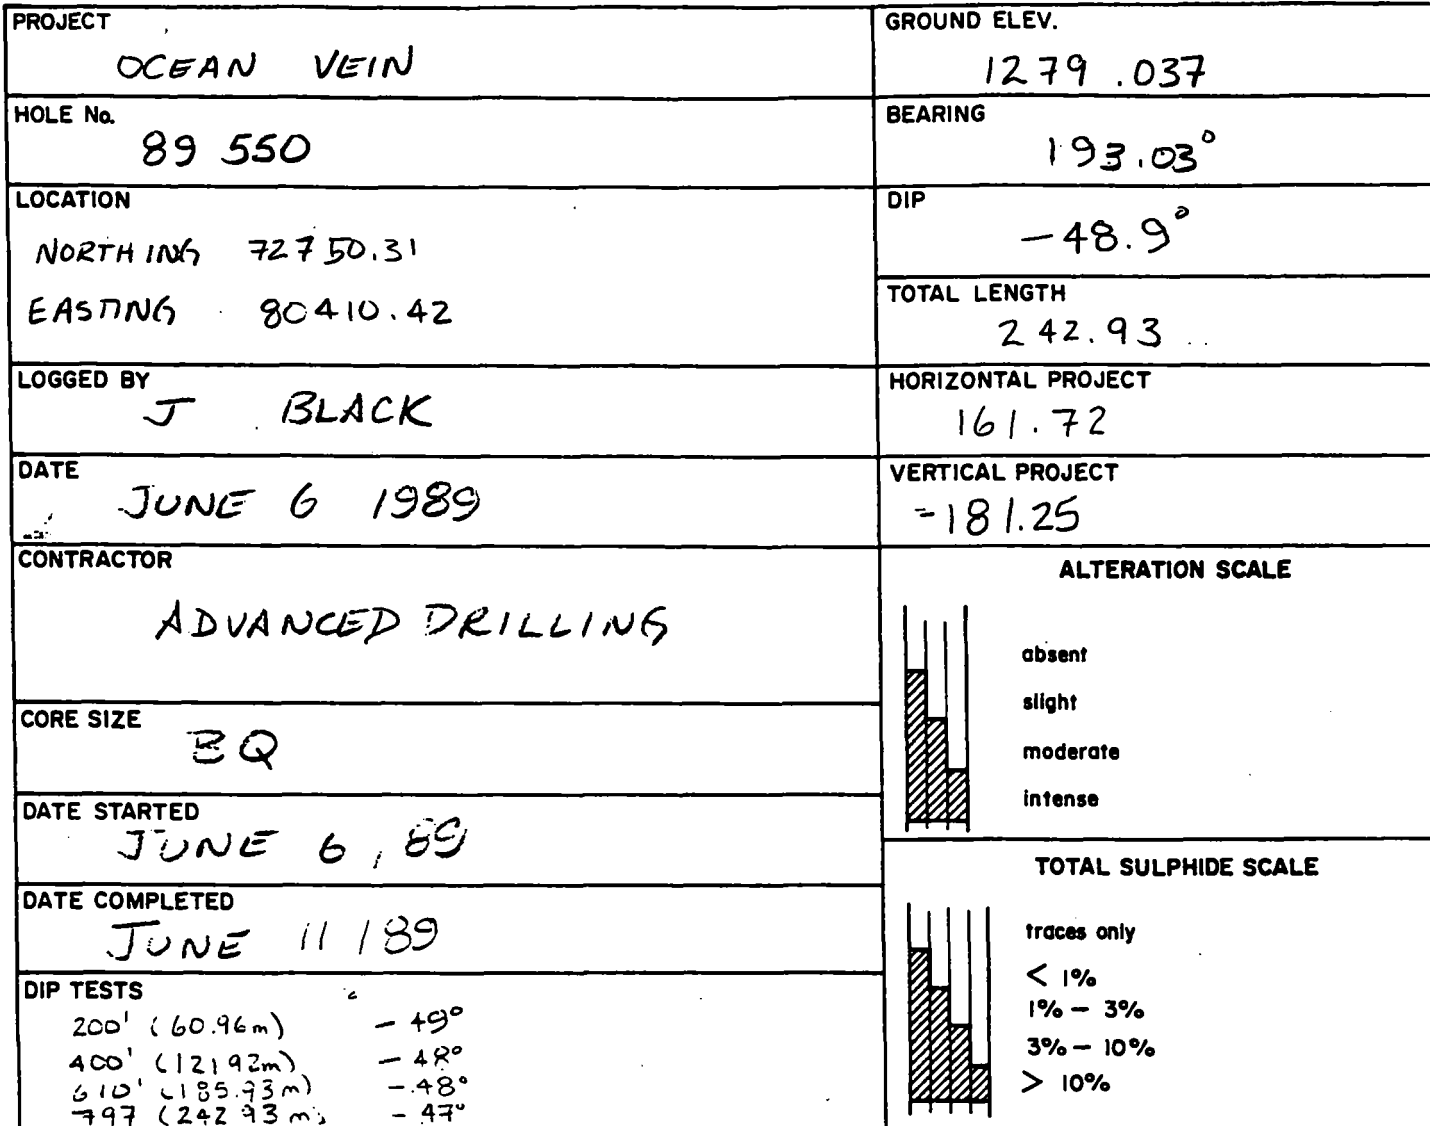 PROJECT
OCEAN VEIN
HOLE No.
89 550
LOCATION
NORTHING 72750.31
EASTING 80410.42
LOGGED BY
J BLACK
DATE
JUNE 6 1989
CONTRACTOR
ADVANCED DRILLING
CORE SIZE
BQ
DATE STARTED
JUNE 6, 89
DATE COMPLETED
JUNE 11/89
DIP TESTS
200' (60.96m) -49°
400' (121.92m) -48°
610' (185.93m) -48°
797 (242.93m) -47°
GROUND ELEV.
1279.037
BEARING
193.03°
DIP
-48.9°
TOTAL LENGTH
242.93
HORIZONTAL PROJECT
161.72
VERTICAL PROJECT
-181.25
ALTERATION SCALE
absent
slight
moderate
intense
TOTAL SULPHIDE SCALE
traces only
< 1%
1% - 3%
3% - 10%
> 10%